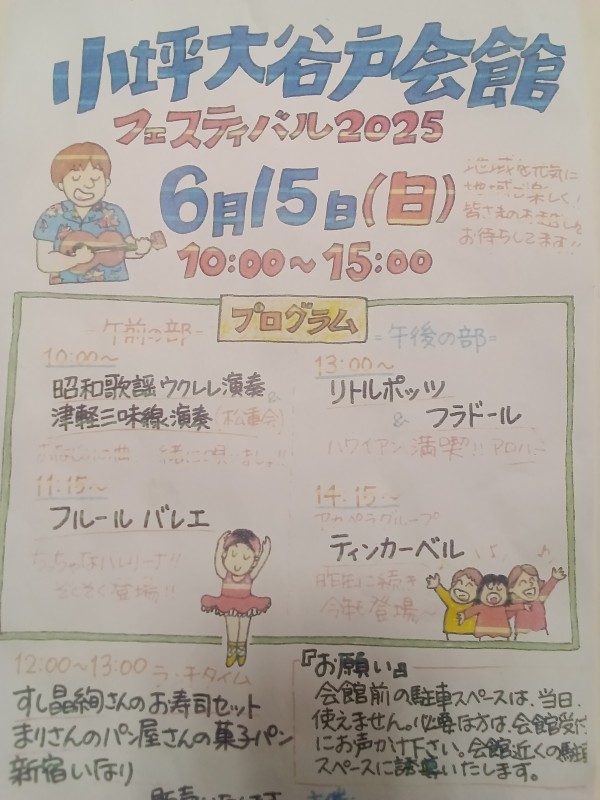 小坪大谷戸会館
フェスティバル2025
6月15日(日)
10:00〜15:00
地域を元気に
地域で楽しく!
皆さまのお越しを
お待ちしてます!!
プログラム
-午前の部-
10:00〜
昭和歌謡ウクレレ演奏&
津軽三味線演奏(松重会)
一緒に唄いましょ!!
11:15〜
フルール バレエ
ちっちゃなバレリーナ!!
登場!!
=午後の部=
13:00〜
リトルポッツ
& フラドール
ハワイアン満喫!! アロハ〜
14:15〜
アカペラグループ
ティンカーベル
昨年に続き
今年も登場〜
12:00〜13:00 ランチタイム
すし晶絢さんのお寿司セット
まりさんのパン屋さんの菓子パン
新宿いなり
販売いたします
『お願い』
会館前の駐車スペースは、当日、
使えません。必要な方は、会館受付
にお声かけ下さい。会館近くの駐車
スペースに誘導いたします。